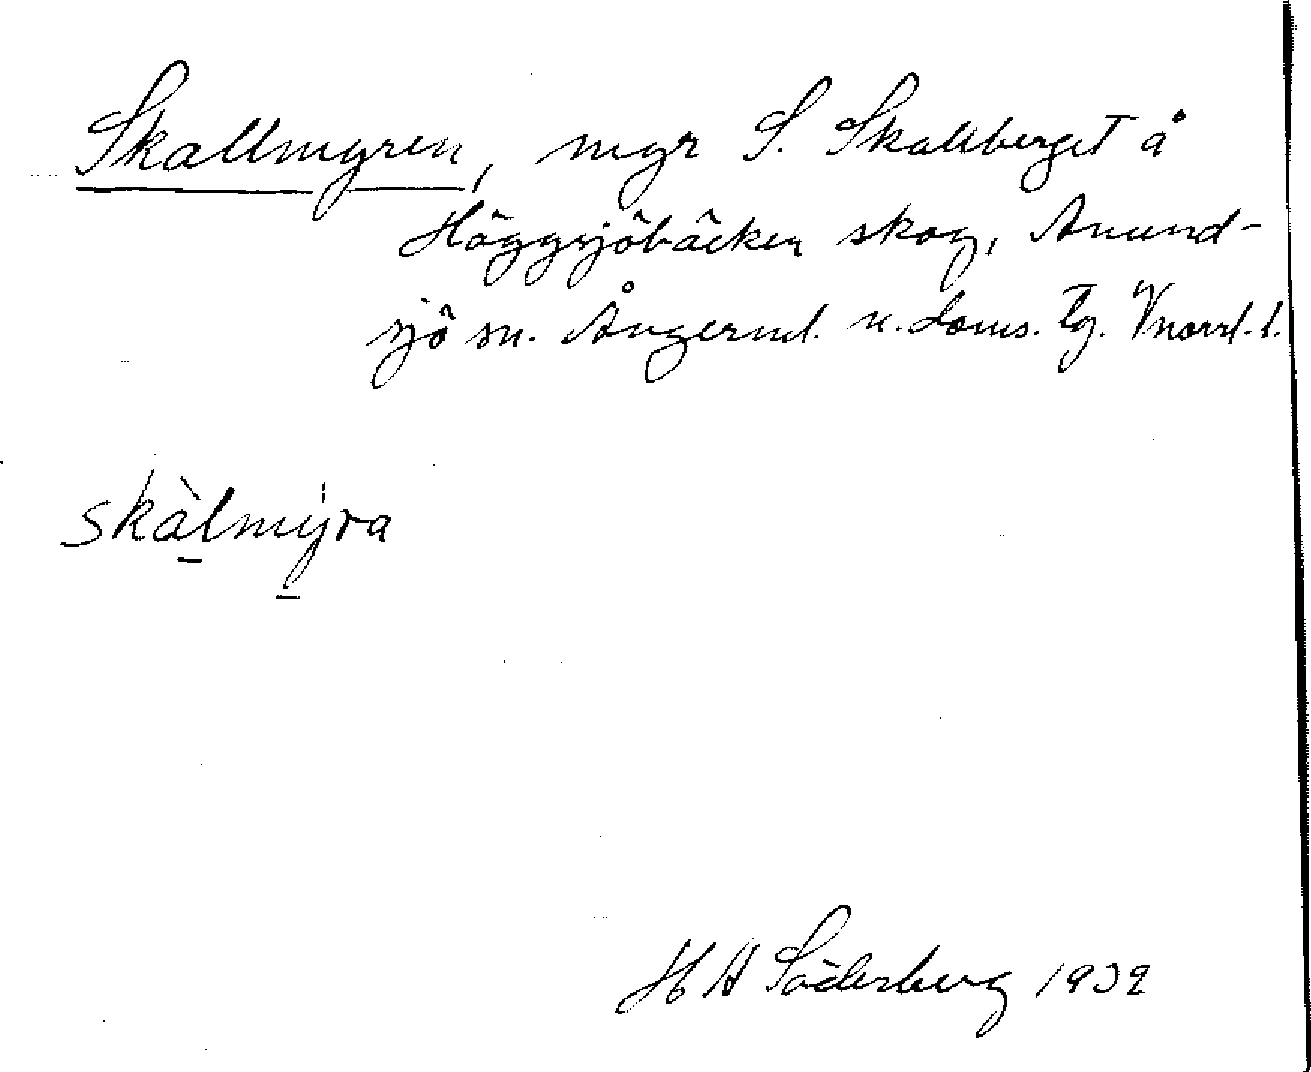 Skallmyren, myr S. Skallberget å
Höggsjöbäcken skog, Anund-
sjö sn. Ångerml. n. doms. tg. Vnorrl. l.
skàlmýra
H A Söderberg 1932